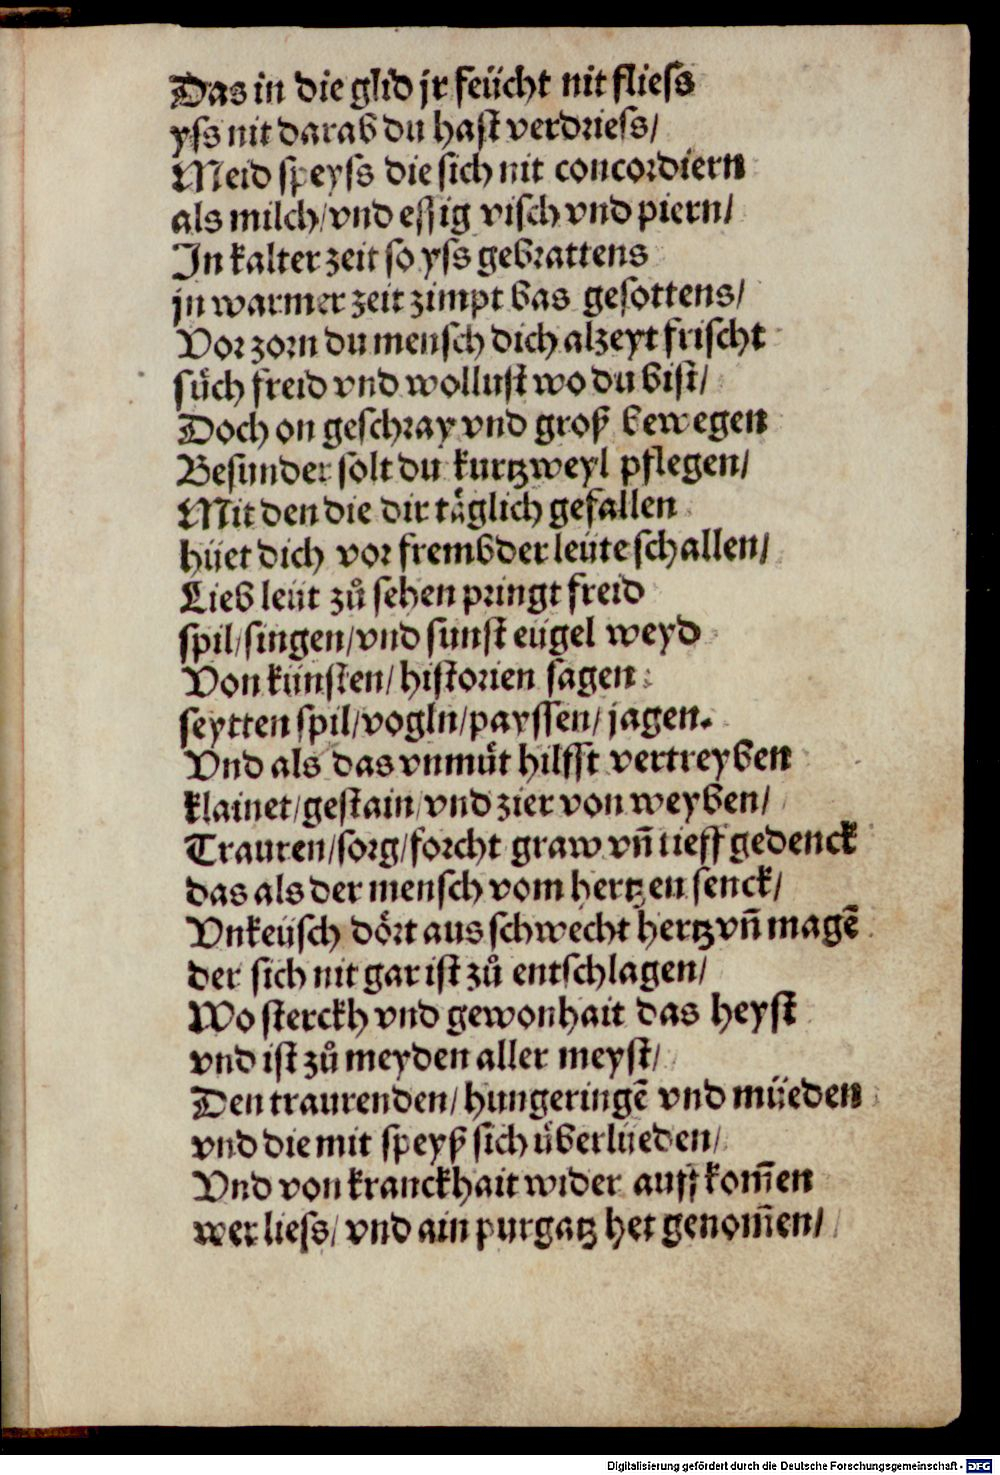 Das in die glid jr feücht nit fliess
yss nit darab du hast verdriess/
Meid speyss die sich nit concordiern
als milch/vnd essig visch vnd piern/
In kalter zeit so yss gebrattens
jn warmer zeit zimpt bas gesottens/
Vor zorn du mensch dich alzeyt frischt
sůch freid vnd wollust wo du bist/
Doch on geschray vnd groß bewegen
Besunder solt du kurtzweyl pflegen/
Mit den die dir täglich gefallen
hüet dich vor frembder leüte schallen/
Lieb leüt zů sehen pringt freid
spil/singen/vnd sunst eügel weyd
Von künsten/historien sagen
seytten spil/vogln/payssen/jagen.
Vnd als das vnmůt hilfft vertreyben
klainet/gestain/vnd zier von weyben/
Trauren/sorg/forcht graw vñ tieff gedenck
das als der mensch vom hertzen senck/
Vnkeüsch dört aus schwecht hertz vñ magē
der sich nit gar ist zů entschlagen/
Wo sterckh vnd gewonhait das heyst
vnd ist zů meyden aller meyst/
Den traurenden/hungeringē vnd müeden
vnd die mit speyß sich überlüeden/
Vnd von kranckhait wider auff kom̄en
wer liess/vnd ain purgatz het genom̄en/
Digitalisierung gefördert durch die Deutsche Forschungsgemeinschaft - DFG